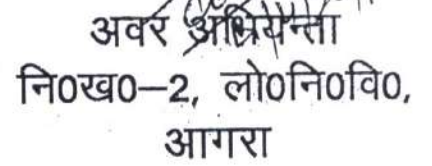 अवर अभियन्ता
नि0ख0–2, लो0नि0वि0,
आगरा